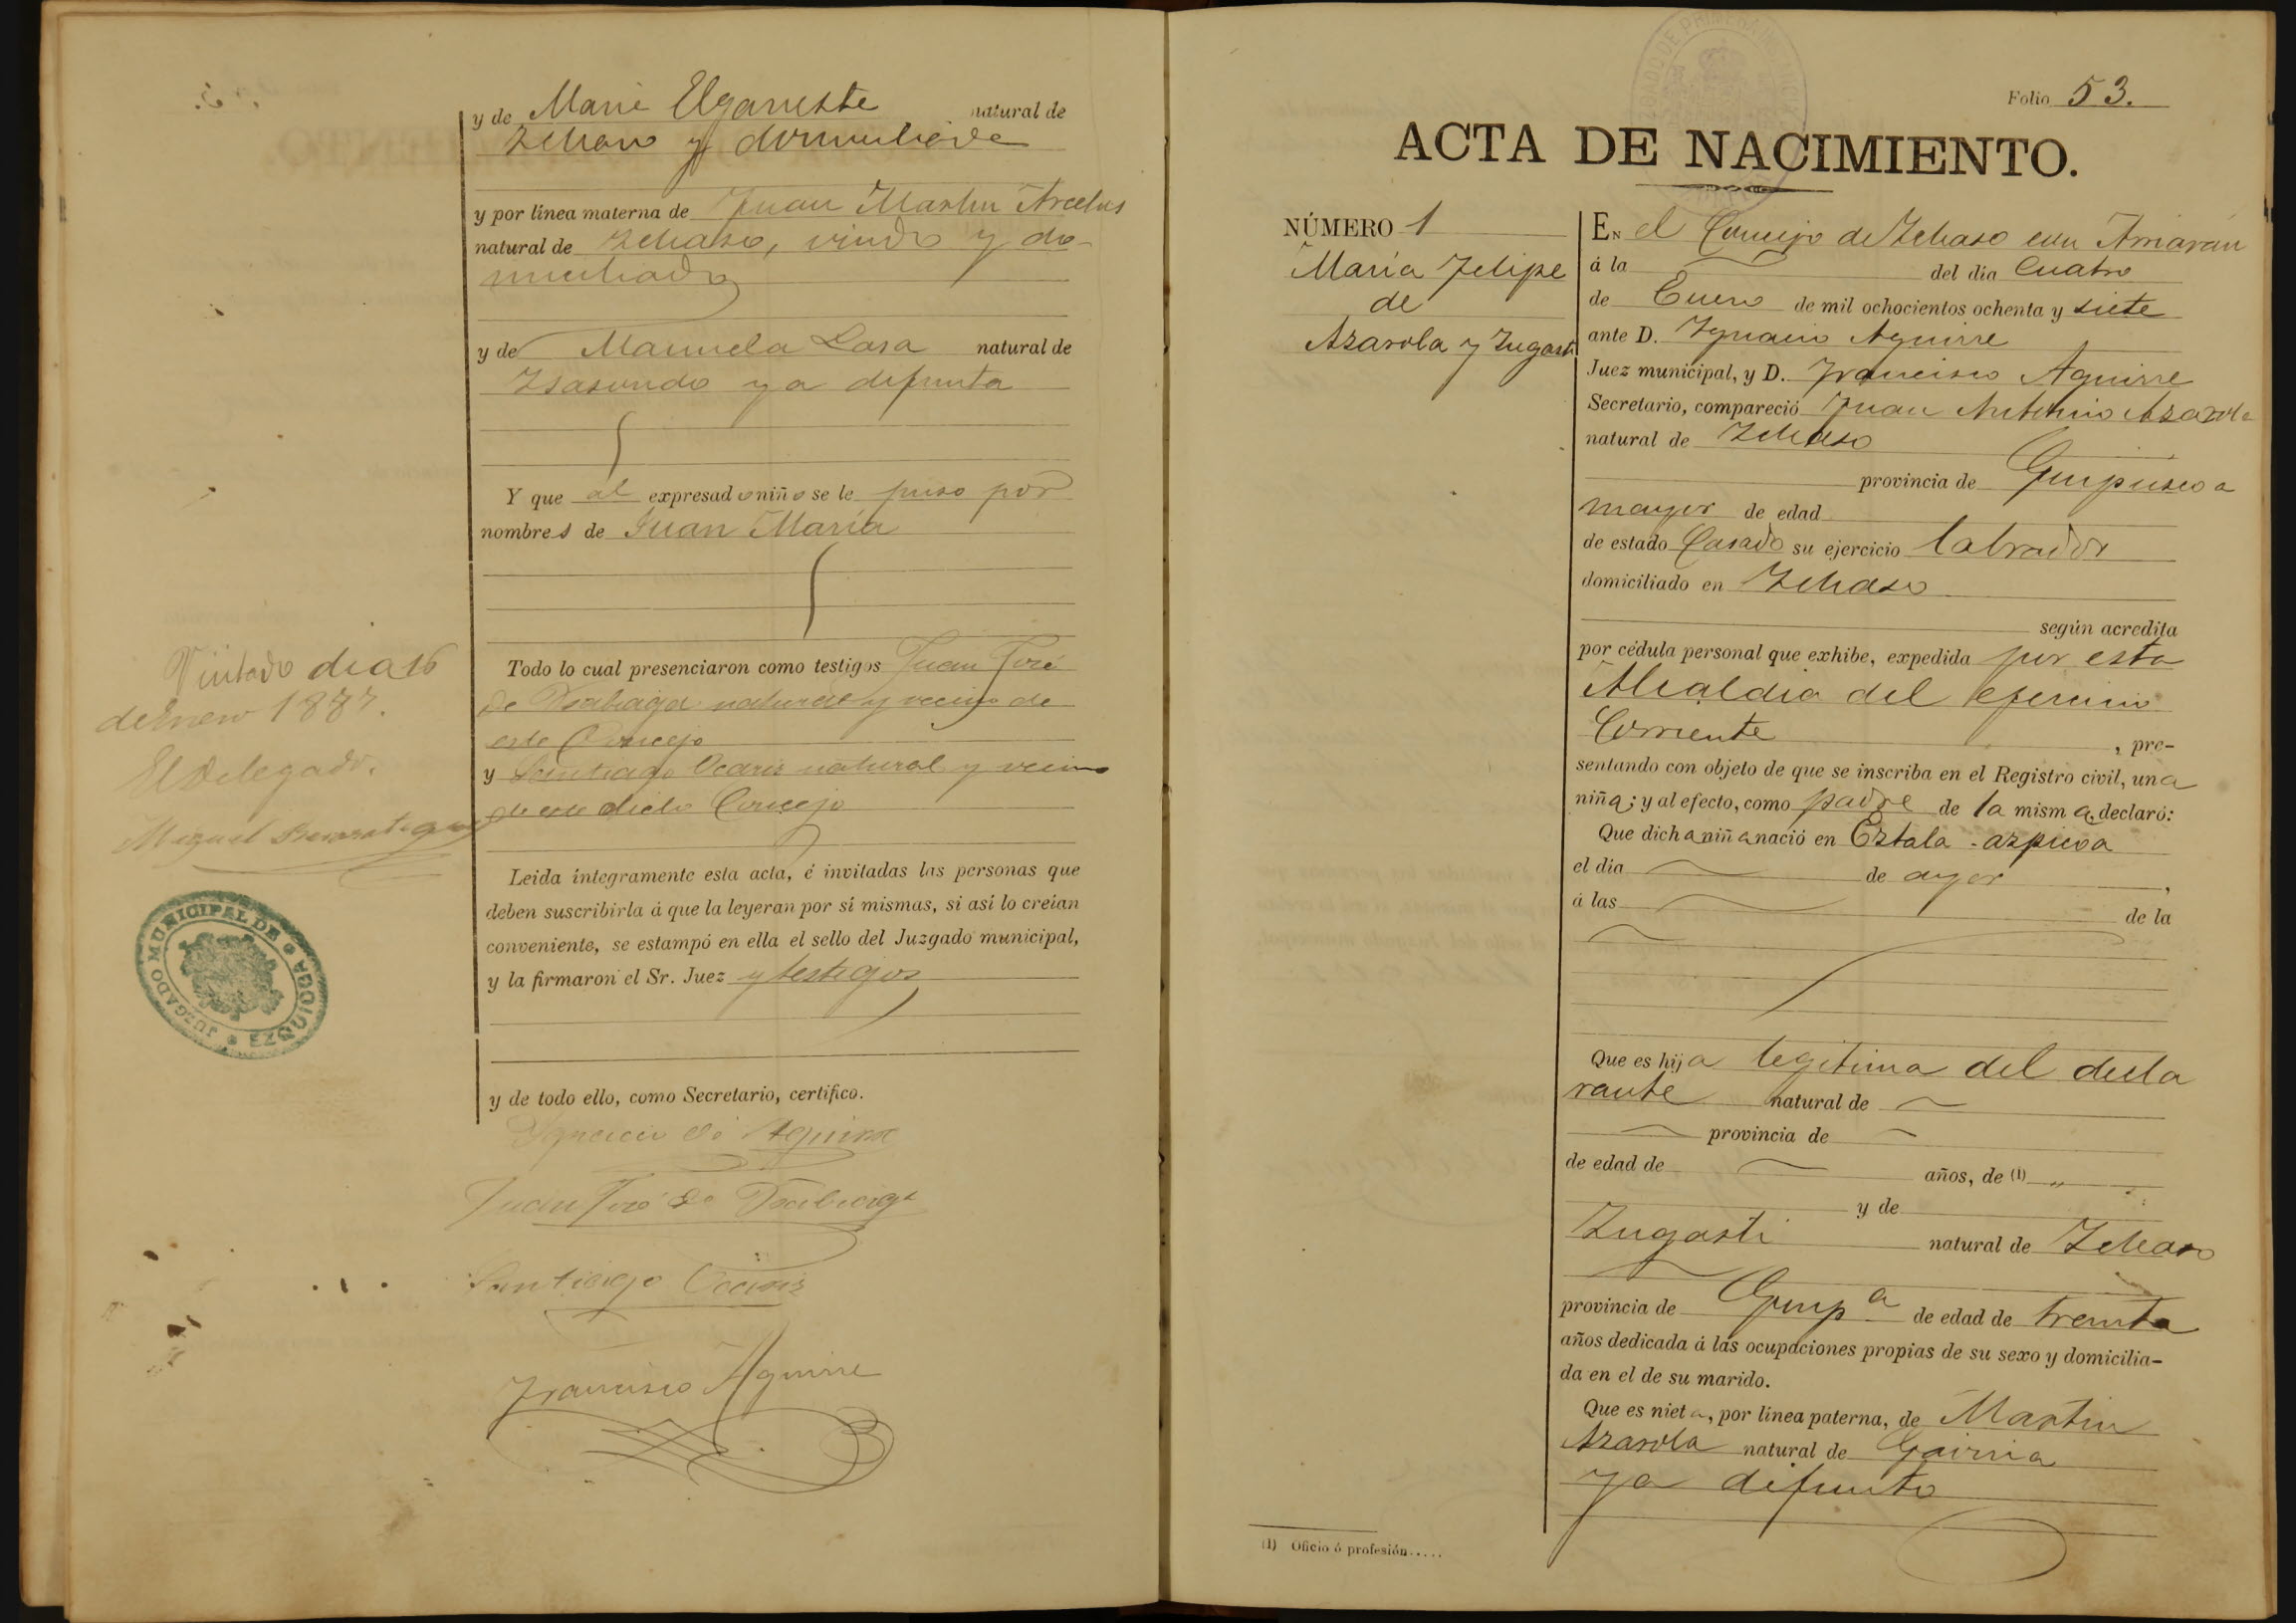 y de Maria Elgarresta natural de
Ichaso y domiciliada
y por línea materna de Juan Martin Arcelus
natural de Ichaso, viudo y do-
miciliado
y de Manuela Lasa natural de
Isasondo ya difunta
Y que al expresado niño se le puso por
nombres de Juan María
Todo lo cual presenciaron como testigos Juan José
de natural y vecino de
este Concejo
y Santiago Ocariz natural y vecino
de este dicho Concejo
Visitado dia 16
de Enero 1887.
El Delegado.
Miguel
JUZGADO MUNICIPAL DE EZQUIOGA
Leida íntegramente esta acta, é invitadas las personas que
deben suscribirla á que la leyeran por sí mismas, si así lo creían
conveniente, se estampó en ella el sello del Juzgado municipal,
y la firmaron el Sr. Juez y testigos
y de todo ello, como Secretario, certifico.
Ignacio de Aguirre
Juan José de
Santiago Ocariz
Francisco Aguirre
Folio 53.
ACTA DE NACIMIENTO.
NÚMERO 1
María Felipe
de
Azarola y Zugasti
EN el Concejo de Ichaso con Arriarán
á la del día Cuatro
de Enero de mil ochocientos ochenta y siete
ante D. Ygnacio Aguirre
Juez municipal, y D. Francisco Aguirre
Secretario, compareció Juan Antonio Azarola
natural de Ichaso
provincia de Guipúzcoa
mayor de edad
de estado Casado su ejercicio labrador
domiciliado en Ichaso
según acredita
por cédula personal que exhibe, expedida por esta
Alcaldia del ejercicio
Corriente , pre-
sentando con objeto de que se inscriba en el Registro civil, una
niña; y al efecto, como padre de la misma, declaró:
Que dicha niña nació en Eztala-azpicoa
el día de ayer ,
á las de la
Que es hija legitima del decla
rante natural de
provincia de
de edad de años, de (1) „
y de
Zugasti natural de Ichaso
provincia de Guipª de edad de treinta
años dedicada á las ocupaciones propias de su sexo y domicilia-
da en el de su marido.
Que es nieta, por línea paterna, de Martin
Azarola natural de Gaviria
ya difunto
(1) Oficio ó profesión.....